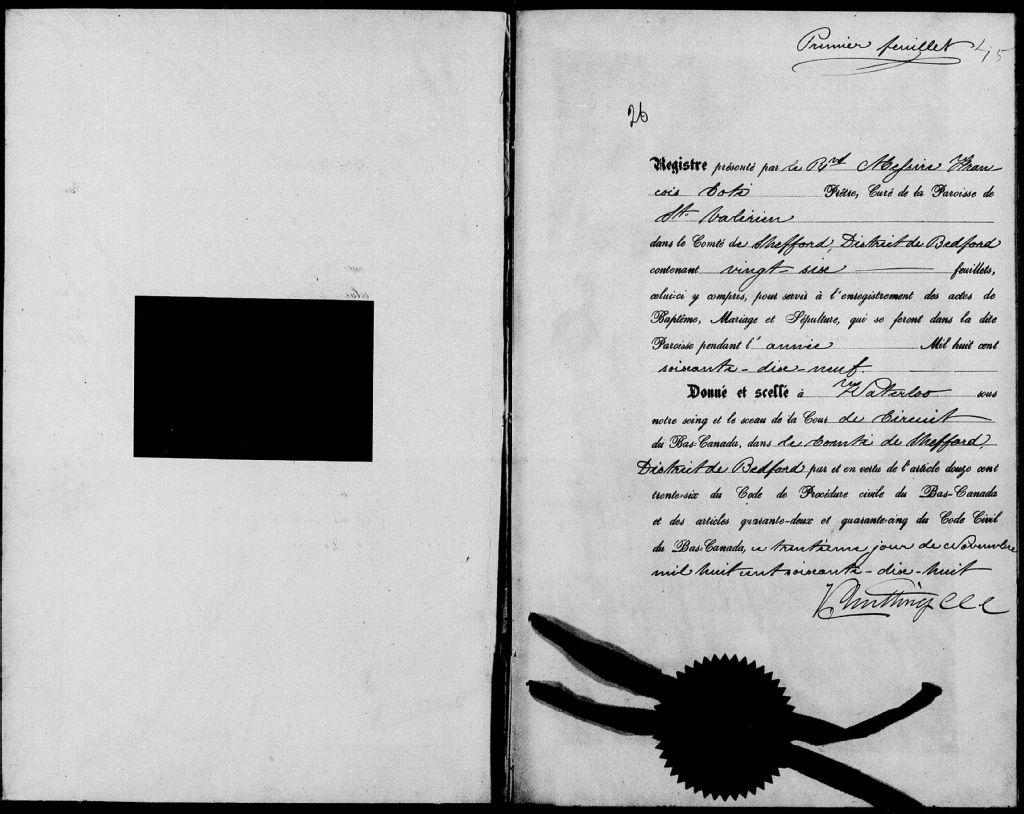 Premier feuillet
26
Registre présenté par le Rvd Messire Fran
cois Coté Prêtre, Curé de la Paroisse de
St. Valérien
dans le Comté de Shefford, District de Bedford
contenant vingt six feuillets,
celui-ci y compris, pour servir à l'enregistrement des actes de
Baptême, Mariage et Sépulture, qui se feront dans la dite
Paroisse pendant l'année Mil huit cent
soixante-dix-neuf.
Donné et scellé à Waterloo sous
notre seing et le sceau de la Cour de Circuit
du Bas-Canada, dans le Comté de Shefford,
District de Bedford par et en vertu de l'article douze cent
trente-six du Code de Procédure civile du Bas-Canada
et des articles quarante-deux et quarante-cinq du Code Civil
du Bas-Canada, ce trentième jour de Novembre
mil huit cent soixante-dix-huit
C C C